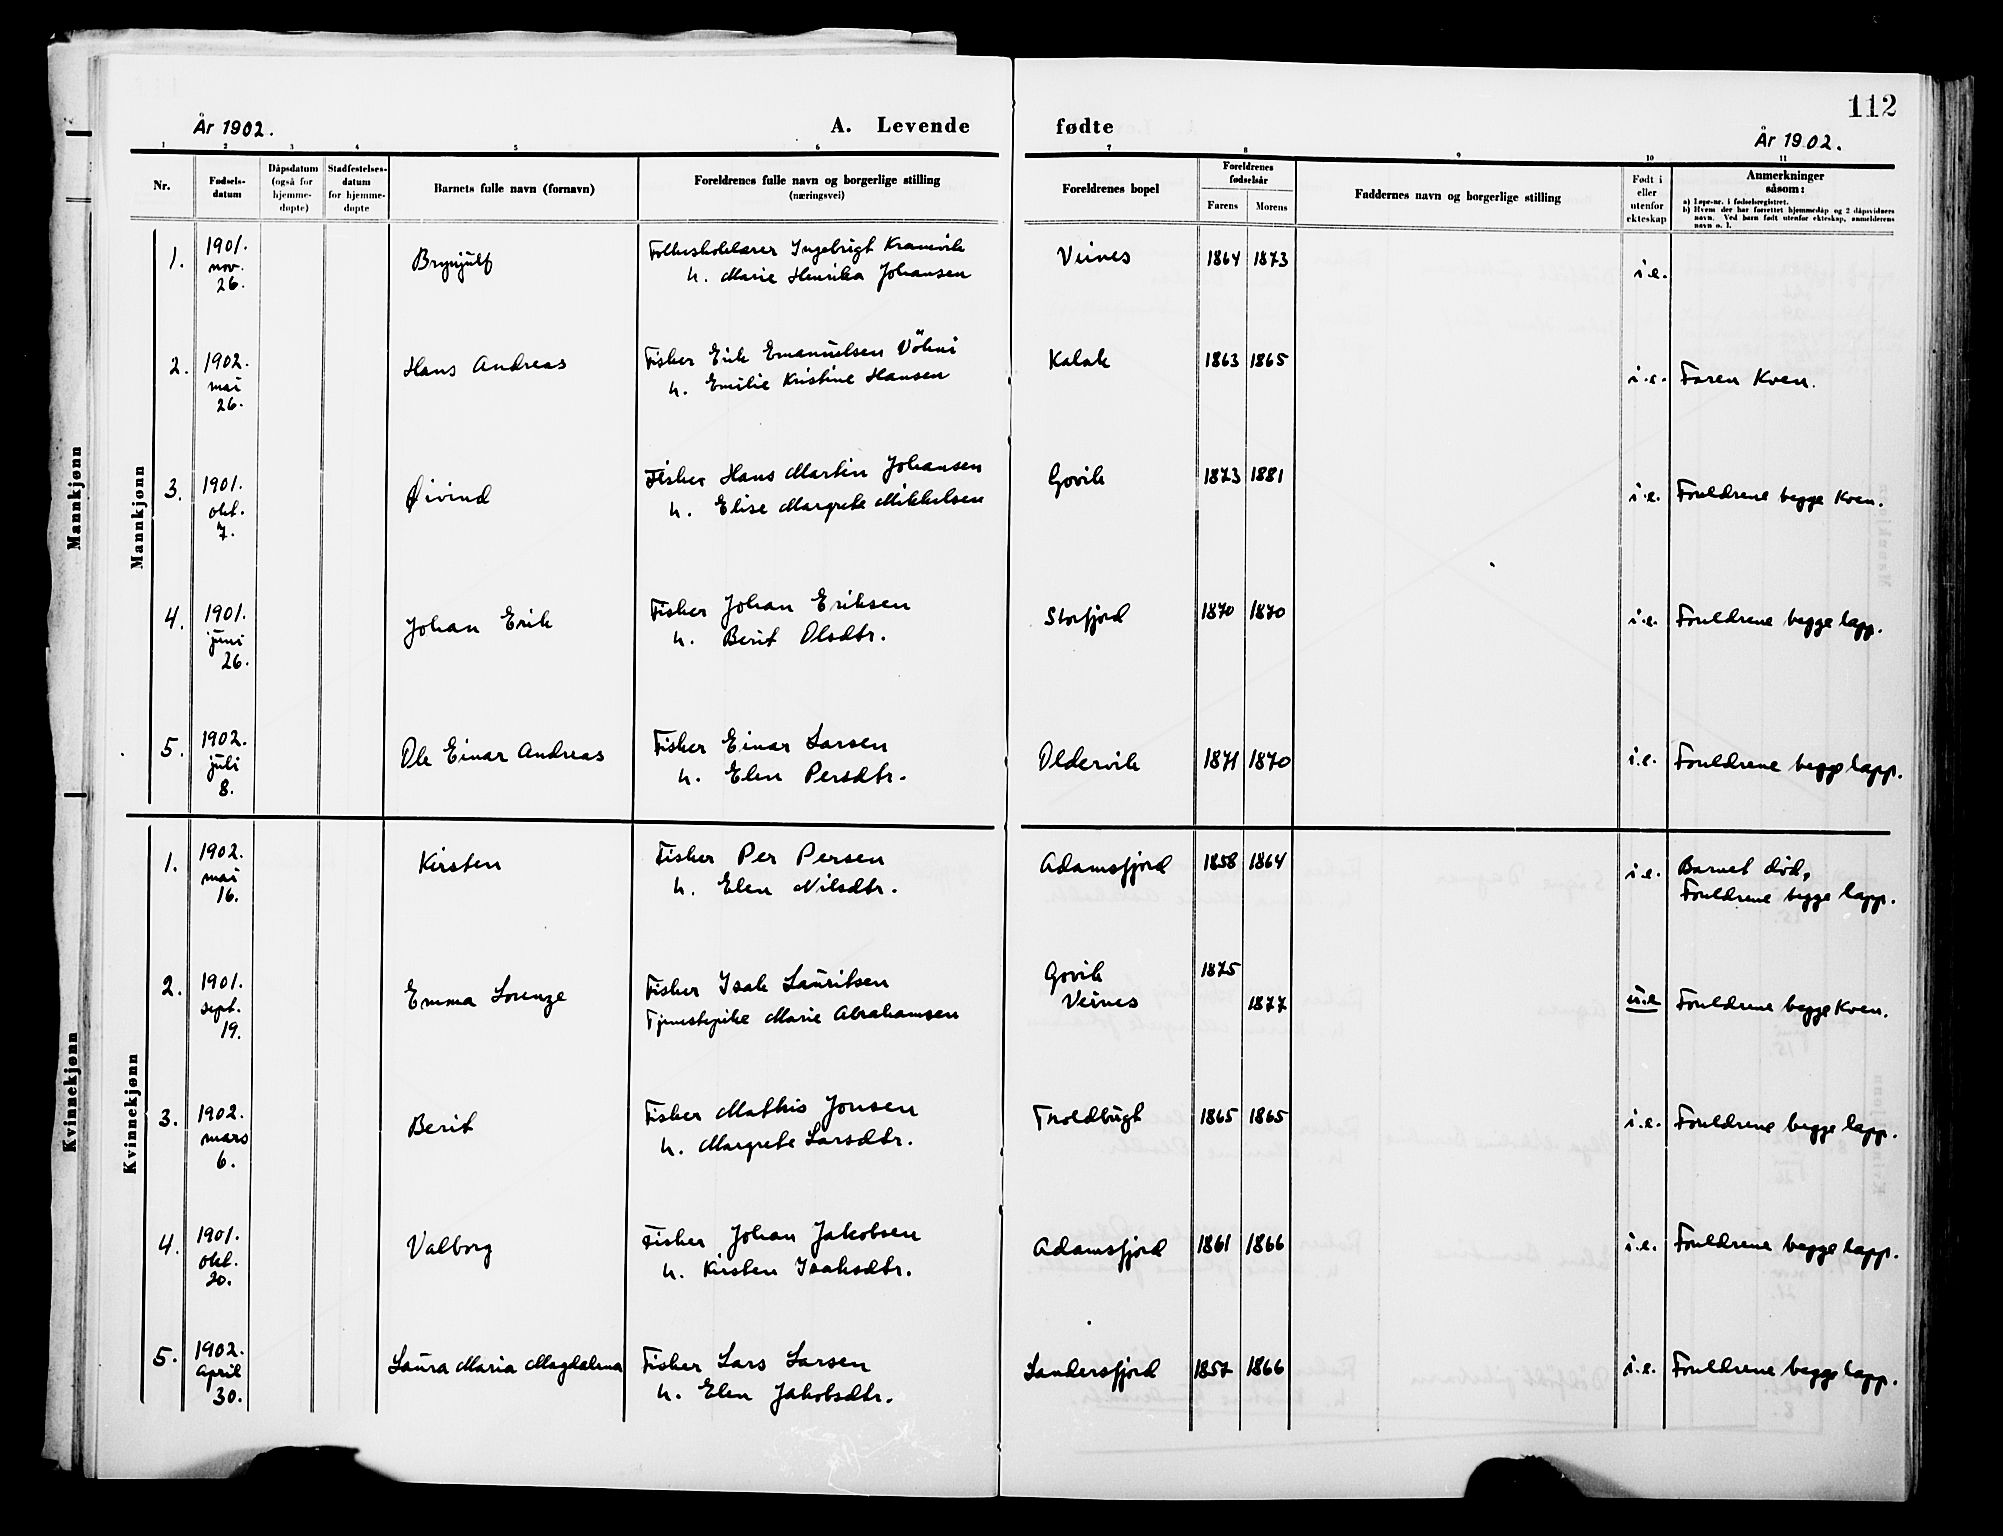 112
År 1902.
A. Levende fødte
År 1902.
1 2 3 4 5 6 7 8 9 10 11
Nr.
Fødsels-
datum
Dåpsdatum
(også for
hjemme-
døpte)
Stadfestelses-
datum
for hjemme-
døpte
Barnets fulle navn (fornavn)
Foreldrenes fulle navn og borgerlige stilling
(næringsvei)
Foreldrenes bopel
Foreldrenes
fødselsår
Farens Morens
Faddernes navn og borgerlige stilling
Født i
eller
utenfor
ekteskap
Anmerkninger
såsom:
a) Løpe-nr. i fødselsregistret.
b) Hvem der har forrettet hjemmedåp og 2 dåpsvidners
navn. Ved barn født utenfor ekteskap, anmelderens
navn o. l.
Mannkjønn
Mannkjønn
1.
1901.
nov.
26.
Brynjulf
Folkeskolelærer Ingebrigt Kranvik
h. Marie Henrika Johansen
Veines
1864 1873
i.e.
2.
1902.
mai
26.
Hans Andreas
Fisker Erik Emanuelsen Vöhni
h. Emilie Kristine Hansen
Kalak
1863 1865
i.e.
Faren Kven.
3.
1901.
okt.
7.
Øivind
Fisker Hans Martin Johansen
h. Elise Margrete Mikkelsen
Govik
1873 1881
i.e.
Foreldrene begge Kven.
4.
1901.
juni
26.
Johan Erik
Fisker Johan Eriksen
h. Berit Olsdtr.
Storfjord
1870 1870
i.e.
Foreldrene begge lapp.
5.
1902.
juli
8.
Ole Einar Andreas
Fisker Einar Larsen
h. Elen Persdtr.
Oldervik
1871 1870
i.e.
Foreldrene begge lapp.
Kvinnekjønn
Kvinnekjønn
1.
1902.
mai
16.
Kirsten
Fisker Per Persen
h. Elen Nilsdtr.
Adamsfjord
1858 1864
i.e.
Barnet død,
Foreldrene begge lapp.
2.
1901.
sept.
19.
Emma Lorenze
Fisker Isak Lauritsen
Tjenestepike Marie Abrahamsen
Govik
Veines
1875
1877
u.e
Foreldrene begge Kven.
3.
1902.
mars
6.
Berit
Fisker Mathis Jonsen
h. Margrete Larsdtr.
Troldbugt
1865 1865
i.e.
Foreldrene begge lapp.
4.
1901.
okt.
20.
Valborg
Fisker Johan Jakobsen
h. Kirsten Isaksdtr.
Adamsfjord
1861 1866
i.e.
Foreldrene begge lapp.
5.
1902.
April
30.
Laura Maria Magdalena
Fisker Lars Larsen
h. Elen Jakobsdtr.
Landersfjord
1857 1866
i.e.
Foreldrene begge lapp.